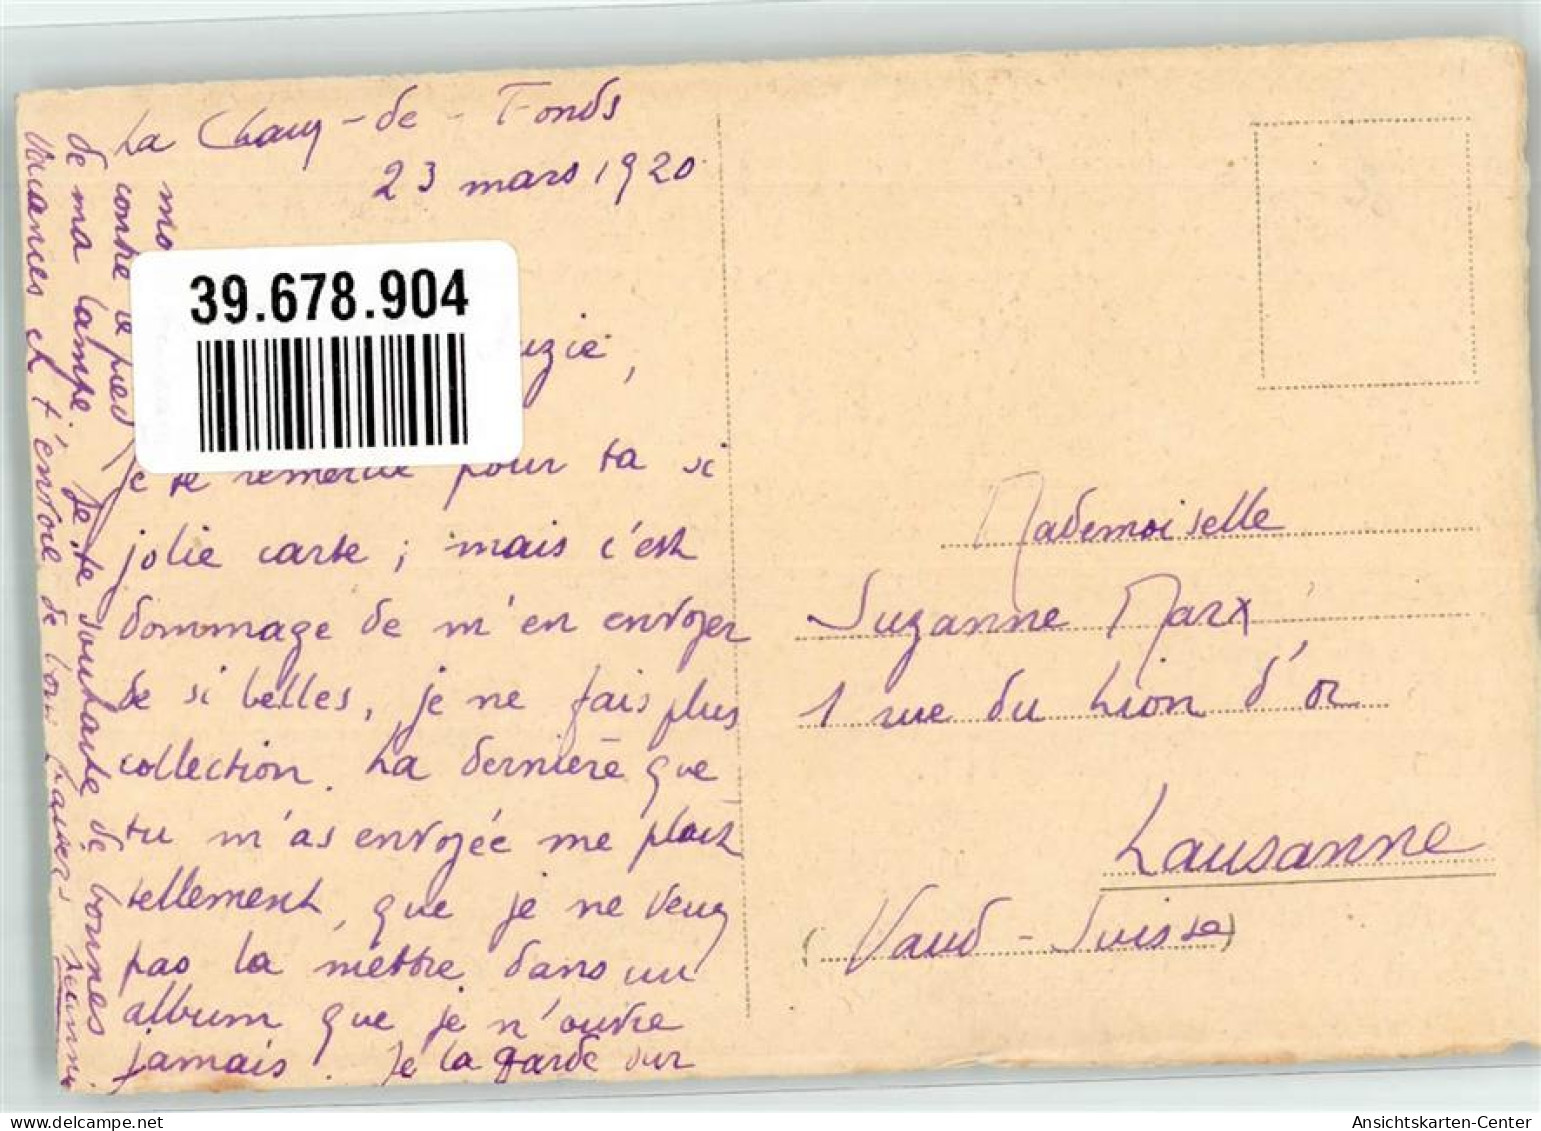 La Chaux-de-Fonds
23 mars 1920
39.678.904
uzie,
Je te remercie pour ta si
jolie carte ; mais c'est
dommage de m'en envoyer
de si belles, je ne fais plus
collection. La dernière que
tu m'as envoyée me plait
tellement, que je ne veux
pas la mettre dans un
album que je n'ouvre
jamais. Je la garde sur
mo
contre le pied
de ma lampe. Je te souhaite de bonnes
vacances et t'envoie de bons baisers
Mademoiselle
Suzanne Marx
1 rue du Lion d'or
Lausanne
(Vaud - Suisse)
Ansichtskarten-Center
delcampe.net